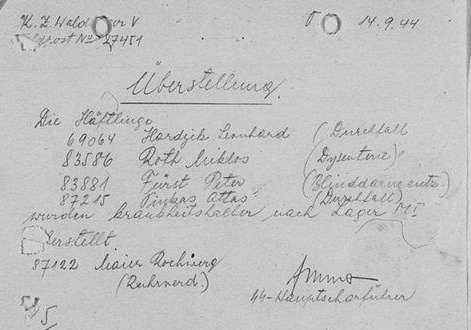 K. Z. Waldlager V 14.9.44
Feldpost No 27451
Überstellung.
Die Häftlinge
69064 Leonhard (Durchfall
83586 Roth Miklos (Dysenterie)
83881 Fürst Peter (Blinddarmentz.)
87215 Pinkas (Durchfall)
wurden krankheitshalber nach Lager M I
überstellt.
87122 Maier
(Ruhrverd)
SS-Hauptscharführer